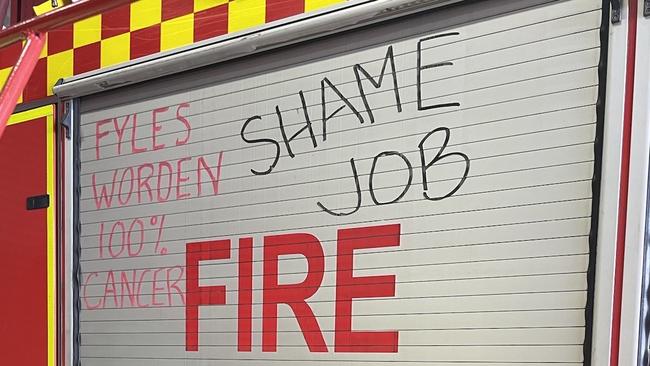 FYLES
WORDEN
100%
CANCER
SHAME
JOB
FIRE